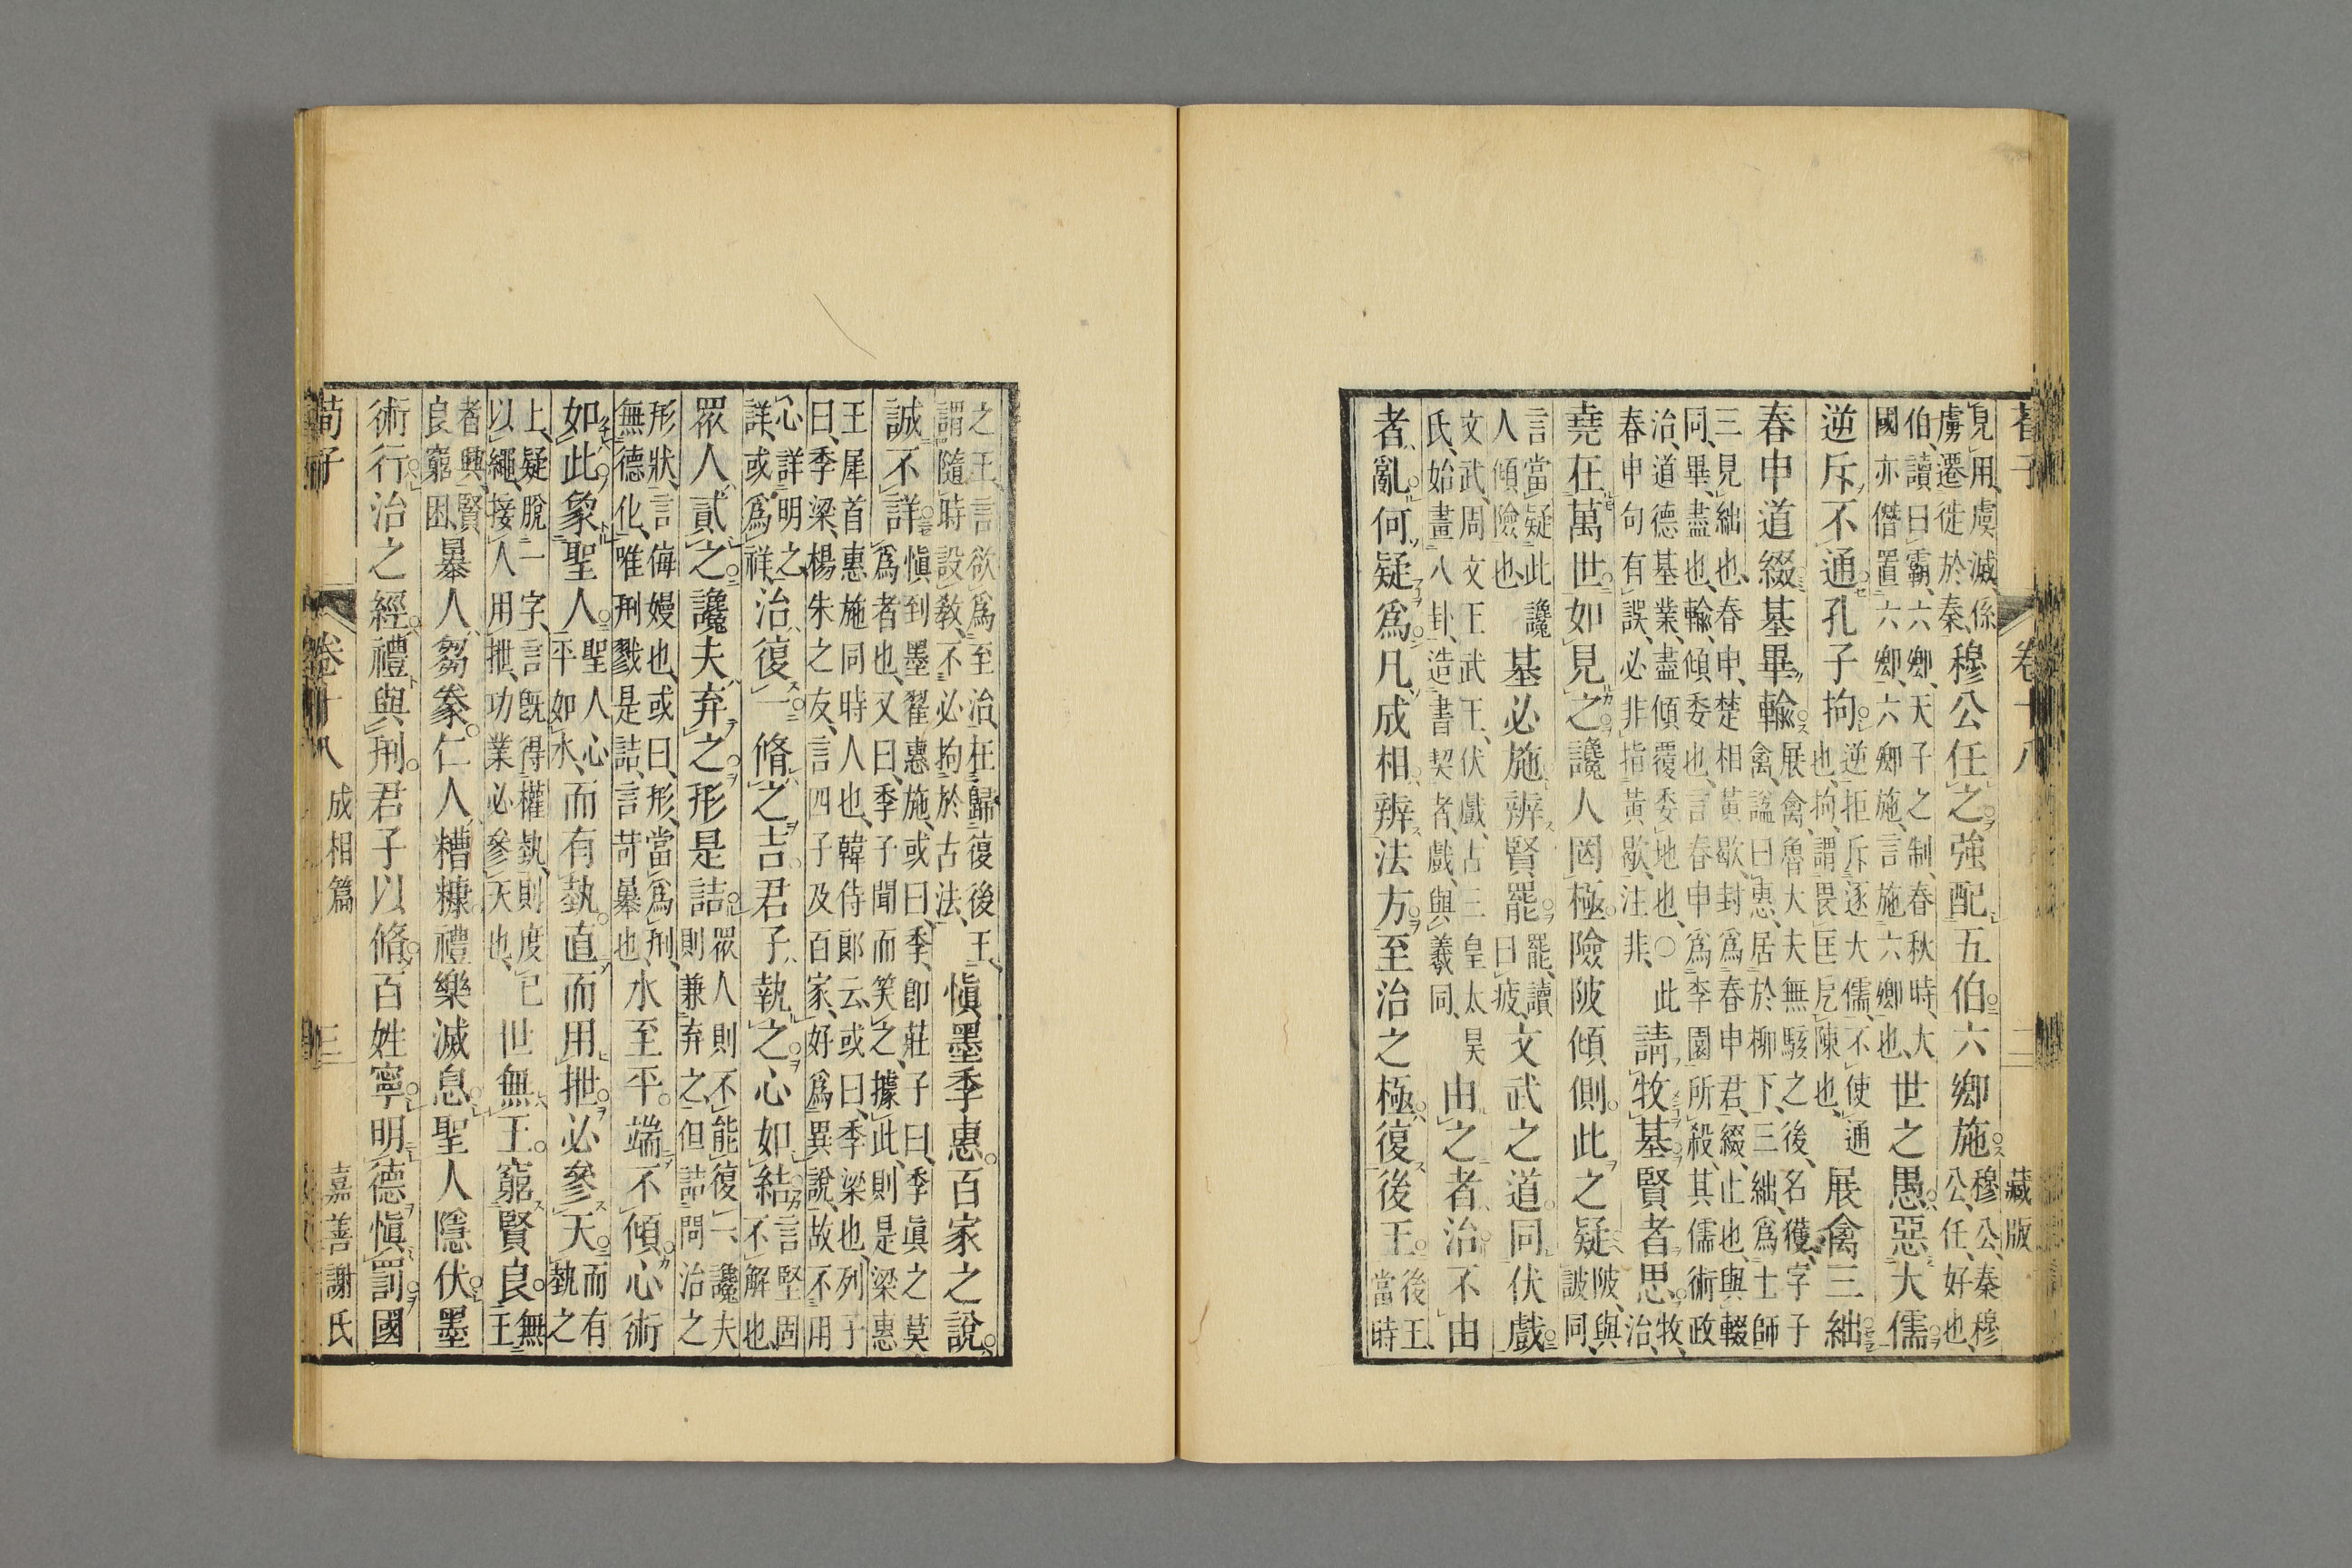 荀子 卷十八 二 藏版
見用、虞滅、係虜遷徙於秦、穆公任之強配五伯六卿施穆公、秦穆公、任、好也、
伯、讀曰霸、六卿、天子之制、春秋時、大國亦僭置六卿、六卿施、言施六卿也、世之愚惡大儒
逆斥不通孔子拘逆拒斥逐大儒、不使通也、拘、謂畏匡戹陳也、展禽三絀
春申道綴基畢輸展禽、魯大夫無駭之後、名獲、字子禽、諡曰惠、居於柳下、三絀、爲士師
三見絀也、春申、楚相黃歇、封爲春申君、綴、止也、與輟同、畢、盡也、輸、傾委也、言春申爲李園所殺、其儒術政
治、道德基業、盡傾覆委地也、〇此春申句有誤、必非指黃歇、注非、請牧基賢者思牧、治、
堯在萬世如見之讒人罔極險陂傾側此之疑陂、與詖同、
言當疑此讒人傾險也、基必施辨賢罷罷、讀曰疲、文武之道同伏戲
文武、周文王武王、伏戲、古三皇太昊氏、始畫八卦、造書契者、戲、與羲同、由之者治不由
者亂何疑爲凡成相辨法方至治之極復後王後王、當時
之王、言欲爲至治、在歸復後王、謂隨時設教、不必拘於古法、愼墨季惠百家之說
誠不詳愼到墨翟惠施、或曰、季、卽莊子曰、季眞之莫爲者也、又曰、季子聞而笑之、據此、則是梁惠
王犀首惠施同時人也、韓侍郞云、或曰、季梁也、列子曰、季梁、楊朱之友、言四子及百家、好爲異說、故不用
心詳明之、詳、或爲祥、治復一脩之吉君子執之心如結言堅固不解也、
眾人貳之讒夫弃之形是詰眾人則不能復一、讒夫則兼弃之、但詰問治之
形狀、言侮嫚也、或曰、形、當爲刑、無德化、唯刑戮是詰、言苛暴也、水至平端不傾心術
如此象聖人聖人心平如水、而有埶直而用抴必參天而有埶之
上、疑脫一字、言旣得權埶、則度己以繩、接人用抴、功業必參天也、世無王窮賢良無王
者興、賢良窮困、暴人芻豢仁人糟糠禮樂滅息聖人隱伏墨
術行治之經禮與刑君子以脩百姓寧明德愼罰國
荀子 卷十八 成相篇 三 嘉善謝氏